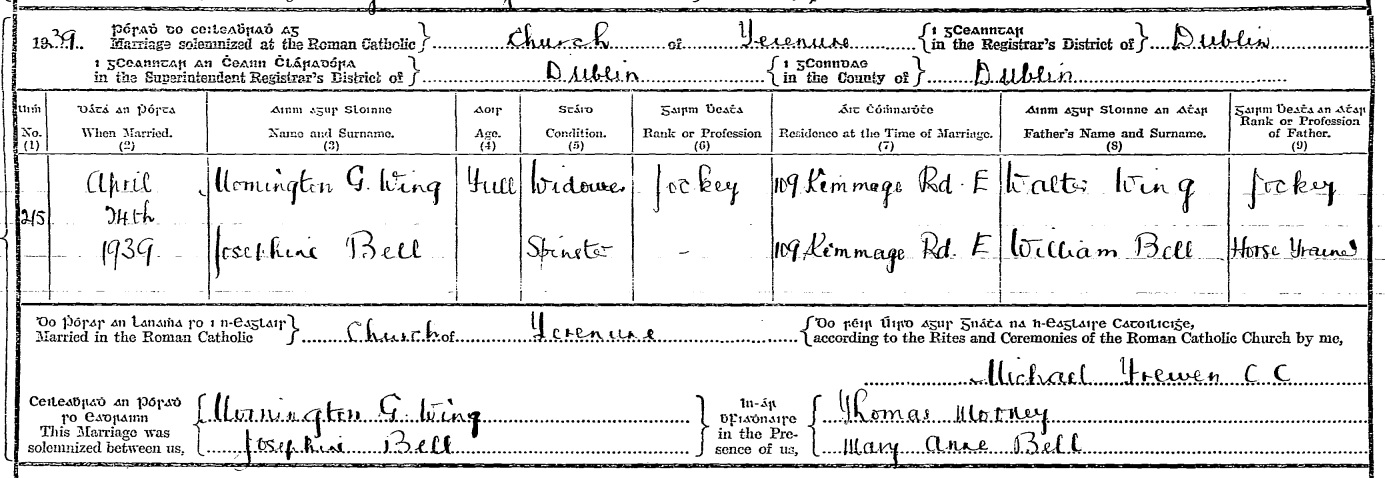 1939. Pórad do ceileabrad ag
Marriage solemnized at the Roman Catholic Church of Terenure
i gCeanntar
in the Registrar's District of Dublin
i gCeanntar an Cheann Chláradóra
in the Superintendent Registrar's District of Dublin
i gConndae
in the County of Dublin
Uimh Dáta an Phórta Ainm agus Sloinne Aois Stáid Gairm Bheatha Áit Chomhnaidhthe Ainm agus Sloinne an Athar Gairm Beatha an Athar
No. When Married. Name and Surname. Age. Condition. Rank or Profession Residence at the Time of Marriage. Father's Name and Surname. Rank or Profession of Father.
(1) (2) (3) (4) (5) (6) (7) (8) (9)
April Mornington G. Wing Full Widower Jockey 109 Kimmage Rd. E Walter Wing Jockey
215 24th
1939 Josephine Bell Spinster - 109 Kimmage Rd. E William Bell Horse Trainer
Married in the Roman Catholic Church of Terenure
according to the Rites and Ceremonies of the Roman Catholic Church by me,
Michael Frewen C C
This Marriage was
solemnized between us,
Mornington G. Wing
Josephine Bell
in the Pre-
sence of us,
Thomas Mooney
Mary Anne Bell